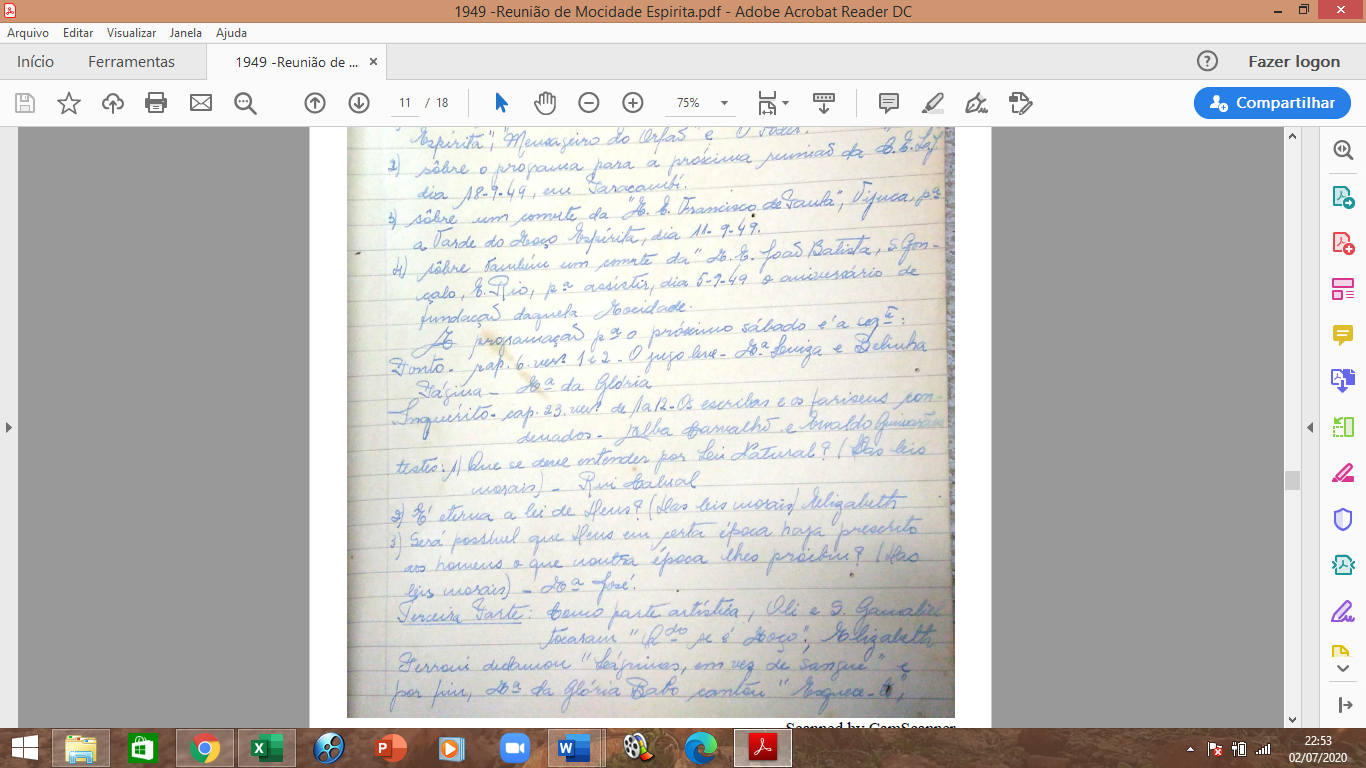 1949 -Reunião de Mocidade Espirita.pdf - Adobe Acrobat Reader DC
Arquivo Editar Visualizar Janela Ajuda
Início Ferramentas 1949 -Reunião de ... ×
11 / 18 75% Fazer logon
Compartilhar
Espírita", "Mensageiro do Orfaõ" e
2) sôbre o programa para a próxima reuniaõ da
dia 18-9-49, em Paracambí.
3) sôbre um convite da "M. E. Francisco de Paula", Tijuca, pª
a Tarde do Moço Espírita, dia 11-9-49.
4) sôbre também um convite da "M. E. Joaõ Batista, S. Gon-
çalo, E. Rio, pª assistir, dia 5-9-49 o aniversário de
fundaçaõ daquela Mocidade.
A programaçaõ pª o próximo sábado é a
Ponto - cap. 6. vers. 1 e 2 - O jugo leve - Mª Luiza e Belinha
Página - Mª da Glória
Inquérito - cap. 23. vers. de 1 a 12 - Os escribas e os fariseus con-
denados - Jalba Carvalho e Arnaldo Guimarães
testes: 1) Que se deve entender por Lei Natural? (Das leis
morais) - Rui Cabral
2) É eterna a lei de Deus? (Das leis morais) Elizabeth
3) Será possível que Deus em certa época haja prescrito
aos homens o que noutra época lhes proibiu? (Das
leis morais) - Mª José.
Terceira Parte: Como parte artística, Oli e S. Gamaliel
tocaram "Qdo se é Moço"; Elizabeth
Ferroni declamou "Lágrimas, em vez de sangue" e
por fim, Mª da Glória Babo cantou "Esquece-
Scanned by CamScanner
22:53
02/07/2020